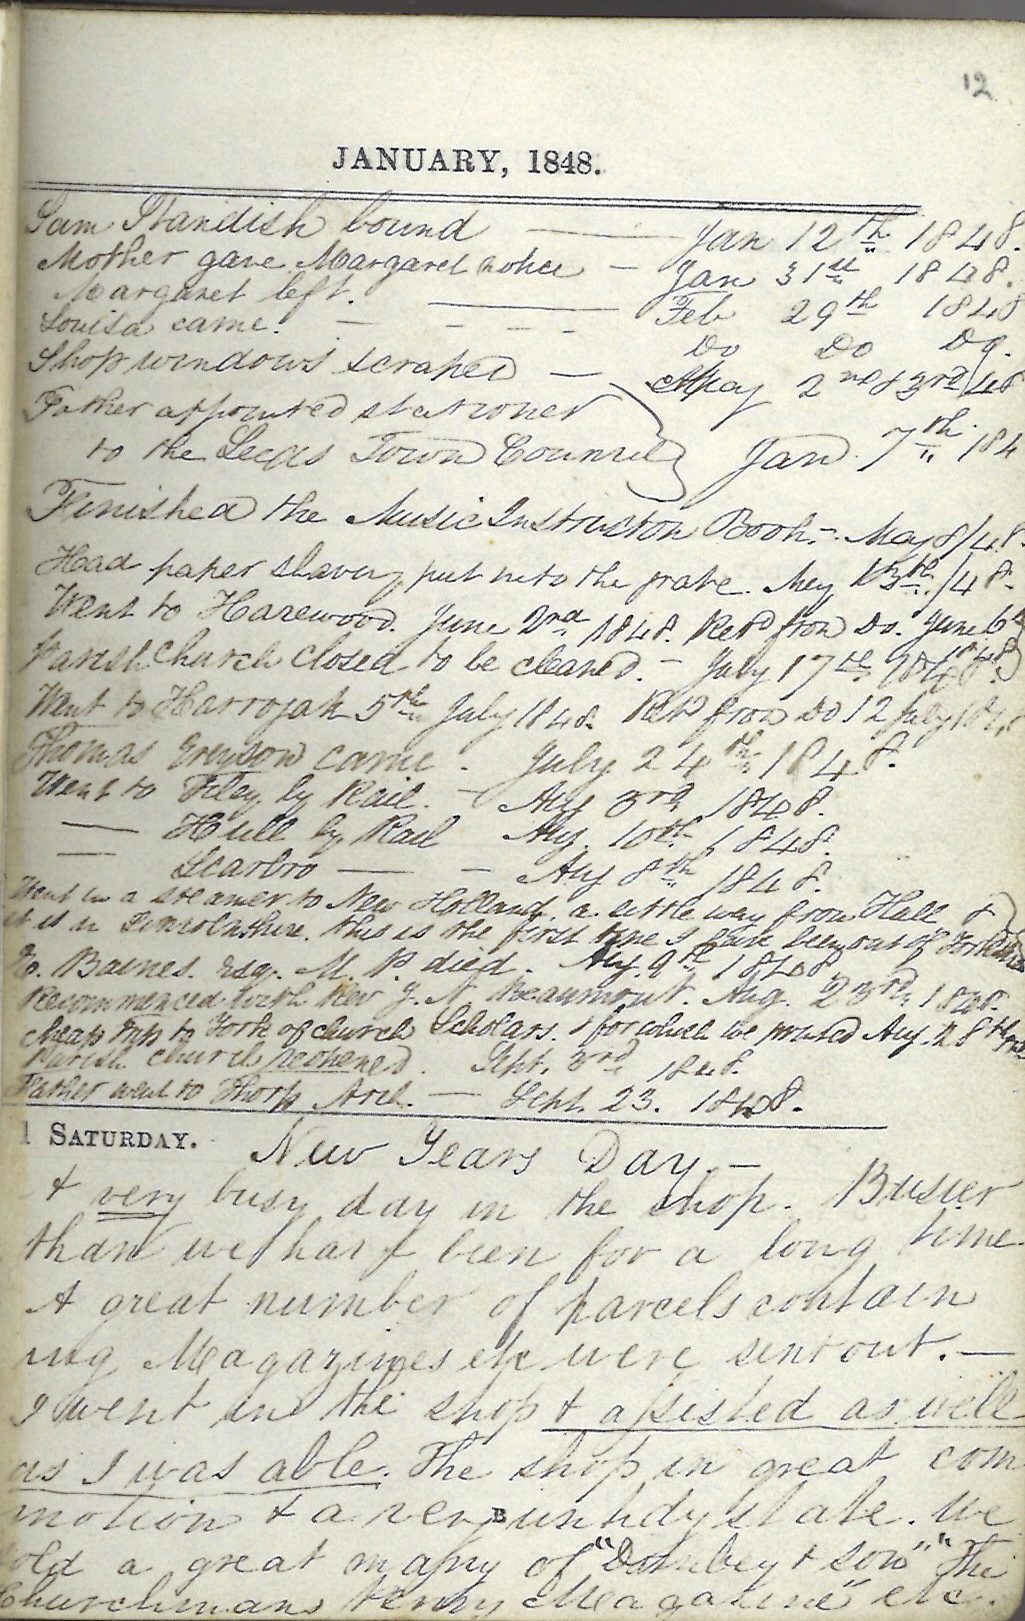 12
JANUARY, 1848.
Sam Standish bound — Jan 12th 1848.
Mother gave Margaret notice — Jan 31st 1848.
Margaret left. — Feb 29th 1848
Louisa came. — - - - Do Do Do.
Shop windows scraped — May 2nd & 3rd/48
Father appointed stationer
to the Leeds Town Council } Jan. 7th 184
Finished the Music Instruction Book. - May 8/48.
Head paper put into the grate. May 13th /48.
Went to Harewood. June 2nd 1848. Retd from Do. June 6th 1848
Parish Church closed to be cleaned. - July 17th 1848.
Went to Harrogate 5th July 1848. Retd from Do 12 July 1848
Thomas Grayson came. July 24th 1848.
Went to Filey by Rail. - Aug 3rd 1848.
— Hull by Rail Aug. 10th 1848.
— Scarbro — - Aug 8th 1848.
Went in a steamer to New Holland, a little way from Hull &
it is in Lincolnshire. This is the first time I have been out of Yorkshire
E. Baines. Esq. M.P. died. Aug. 9th 1848
Recommenced with Rev J. N. Beaumont. Aug. 23rd, 1848.
Cheap trip to York of church Scholars. & for which we printed Aug. 28th
Parish church reopened. Sept. 3rd 1848.
Father went to Thorp Arch. — Sept. 23. 1848.
1 SATURDAY. New Years Day. —
A very busy day in the shop. Busier
than we have been for a long time.
A great number of parcels contain
ing Magazines etc were sent out. —
I went in the shop & assisted as well
as I was able. The shop in great com
motion & a very untidy state. We
B
sold a great many of "Dombey & Son" "The
Churchmans Penny Magazine" etc.